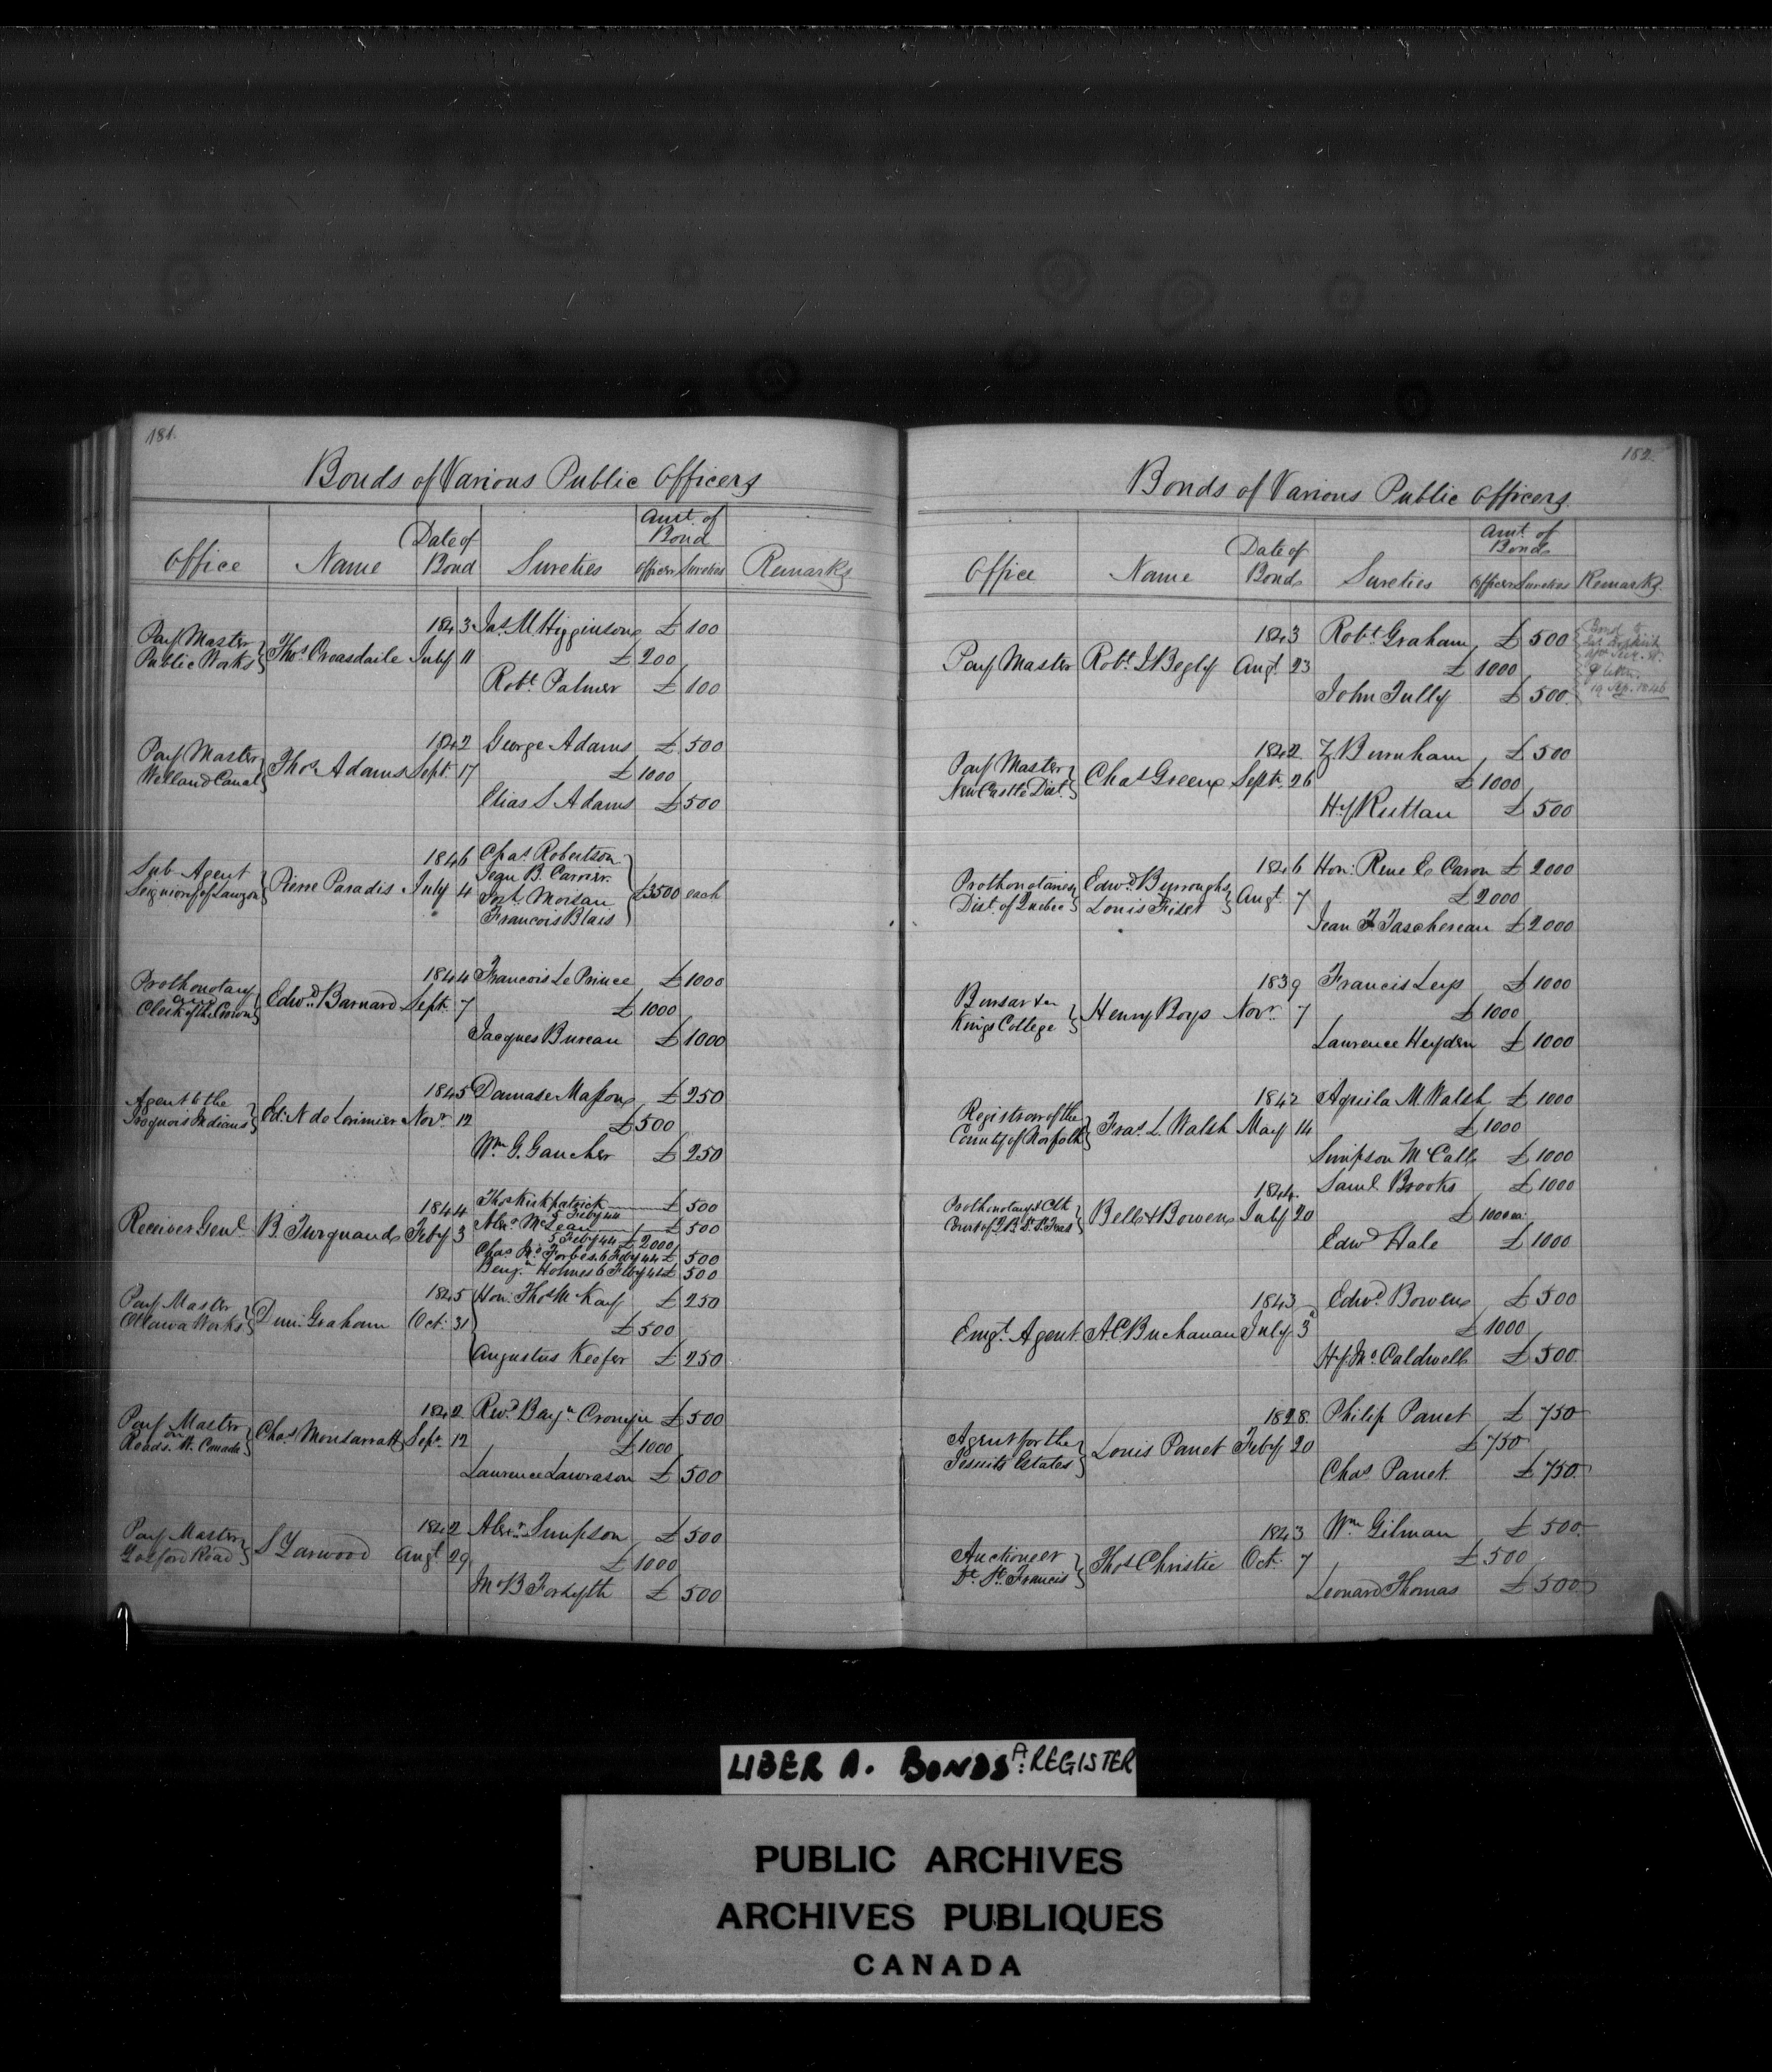 181.
Bonds of Various Public Officers
Office Name Date of Bond Sureties Amt. of Bond Officer Sureties Remarks
1843 Jas. M Higginson £ 100
Pay Master Public Works } Thos Croasdaile July 11 £ 200
Robt. Palmer £ 100
1842 George Adams £ 500
Pay Master Welland Canal } Thos. Adams Sept. 17 £ 1000
Elias S Adams £ 500
1846 Chas. Robertson
Jean B. Carrier
Sub-Agent Seigniory of Lauzon } Pierre Paradis July 4 £3500 each
Morsan
Francois Blais
1844 Francois Le Prince £ 1000
Prothonotary and Clerk of the Crown } Edwd. Barnard Sept. 7 £ 1000
Jacques Bureau £ 1000
1845 Damase Masson £ 250
Agent to the Iroquois Indians } Ed: N de Lorimier Nov. 12 £ 500
Wm. G. Gaucher £ 250
1844 Thos Kirkpatrick £ 500
5 Feby 44
Receiver Genl. B. Turquand Feby 3 Alexr McLean £ 500
5 Feby 44 £ 2000
Chas Jno Forbes 6 Feby 44 £ 500
Benjn Holmes 6 Feby 44 £ 500
1845 Hon. Thos McKay £ 250
Pay Master Ottawa Works } Dun. Graham Oct. 31 £ 500
Augustus Keefer £ 250
1842 Revd. Benjn. Cronyn £ 500
Pay Master on Roads. W. Canada } Chas Monsarratt Sept. 12 £ 1000
Laurence Lawrason £ 500
1842 Alexr. Simpson £ 500
Pay Master Gosford Road } S Yarwood Augt 29 £ 1000
J B Forsyth £ 500
182.
Bonds of Various Public Officers.
Office Name Date of Bond Sureties Amt. of Bond Officer Sureties Remarks.
1843 Robt. Graham £ 500
Pay Master Robt. S Begly Augt. 23 £ 1000
John Tully £ 500.
19 Sep. 1846
1842 Z Burnham £ 500
Pay Master New Castle Dist. } Chas Green Septr. 26 £ 1000
Hy Ruttan £ 500
1846 Hon: Rene E Caron £ 2000
Prothonotaries Dist. of Quebec } Edwd. Burroughs Louis Fiset } Augt. 7 £ 2000
Jean Taschereau £ 2000
1839 Francis Leys £ 1000
Bursar Kings College } Henry Boys Novr. 7 £ 1000
Laurence Heyden £ 1000
1842 Aquila M. Walsh £ 1000
Registrar of the County of Norfolk } Fras. L. Walsh May 14 £ 1000
Simpson McCall £ 1000
1844. Saml. Brooks £ 1000
Prothonotary & Clk Court of Q B St. Frans } Bell & Bowen July 20 £ 1000 ea.
Edwd Hale £ 1000
1843 Edwd. Bowen £ 500
Emgt. Agent A C Buchanan July 3 £ 1000
Hy Jno. Caldwell £ 500.
1828. Philip Panet £ 750
Agent for the Jesuits Estates } Louis Panet Feby 20 £ 750
Chas Panet £ 750.
1843 Wm. Gilman £ 500.
Auctioneer Dt. St. Francis } Thos Christie Oct. 7 £ 500
Leonard Thomas £ 500
LIBER A. BONDS A: REGISTER
PUBLIC ARCHIVES
ARCHIVES PUBLIQUES
CANADA